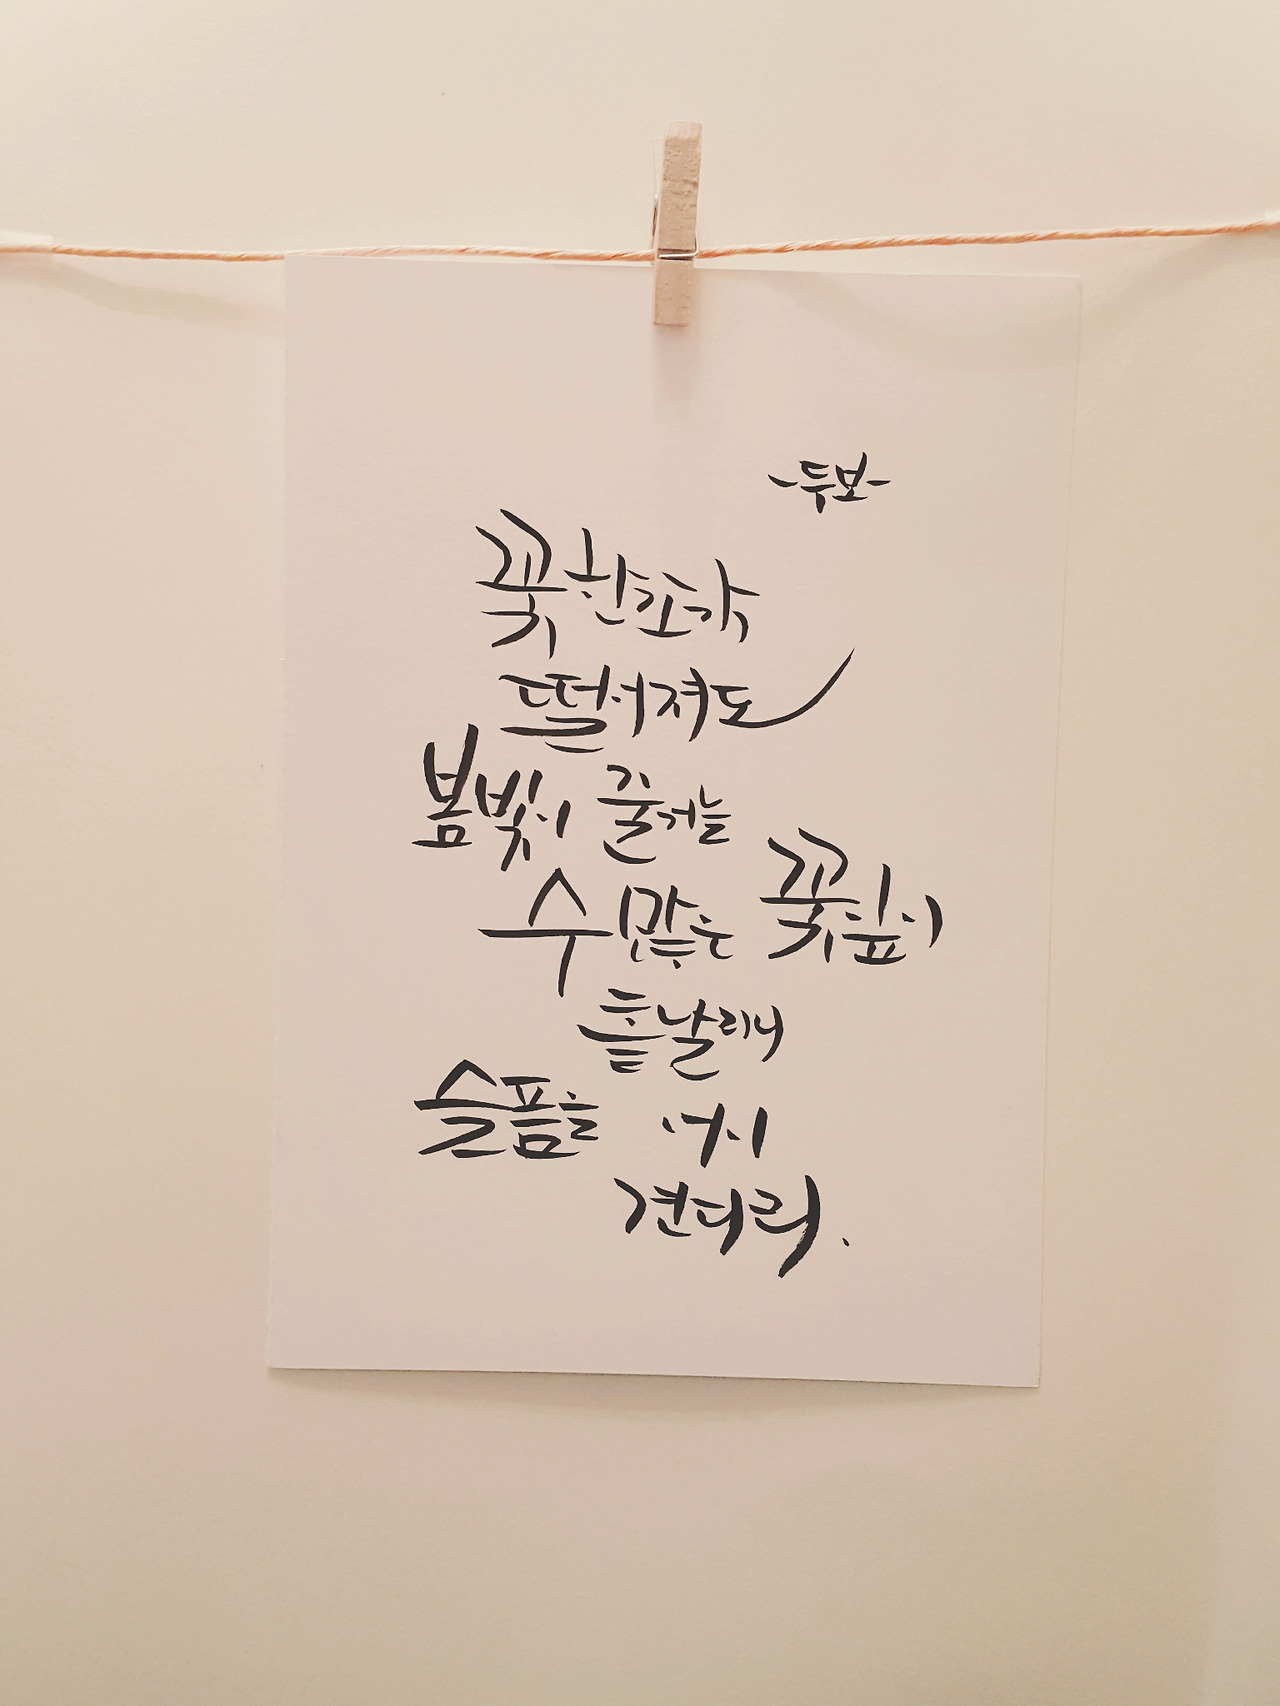 -두보-
꽃 한 조각
떨어져도
봄빛이 줄거늘
수많은 꽃잎이
흩날리니
슬픔을 어이
견디리.